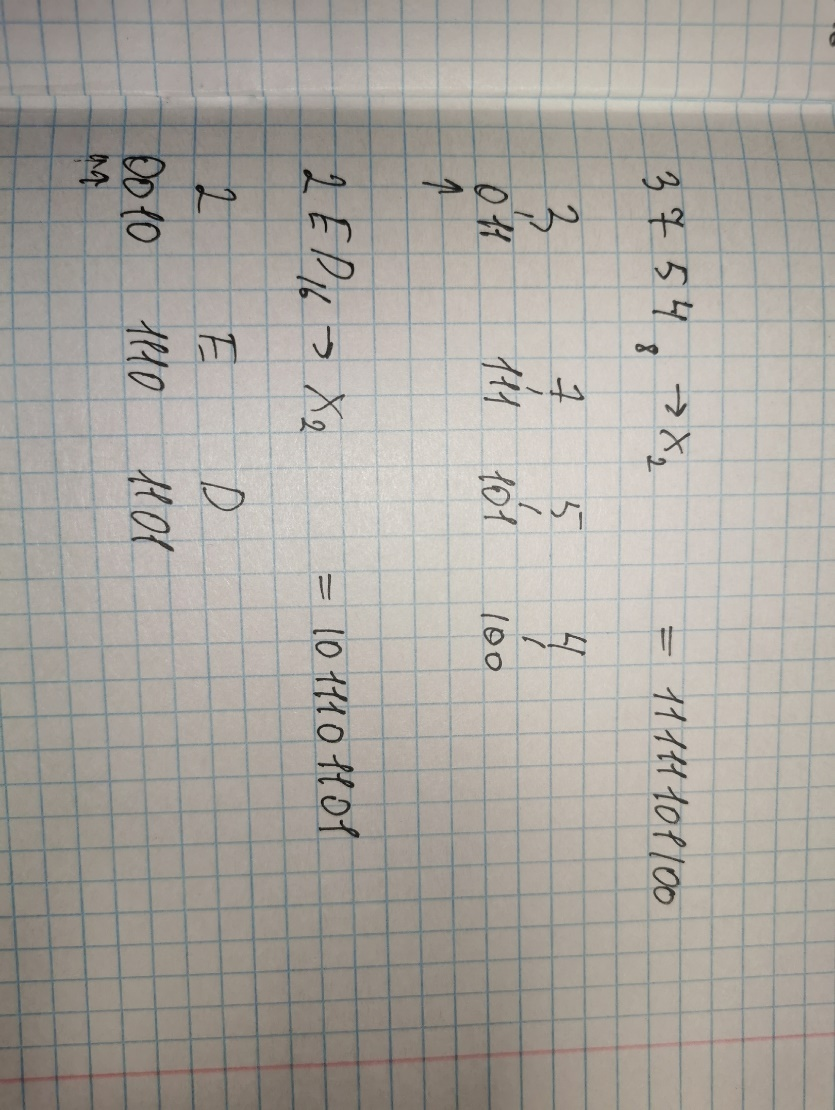 3754₈ → X₂ = 11111101100
3 7 5 4
011 111 101 100
↑
2ED₁₆ → X₂ = 1011101101
2 E D
0010 1110 1101
↑↑